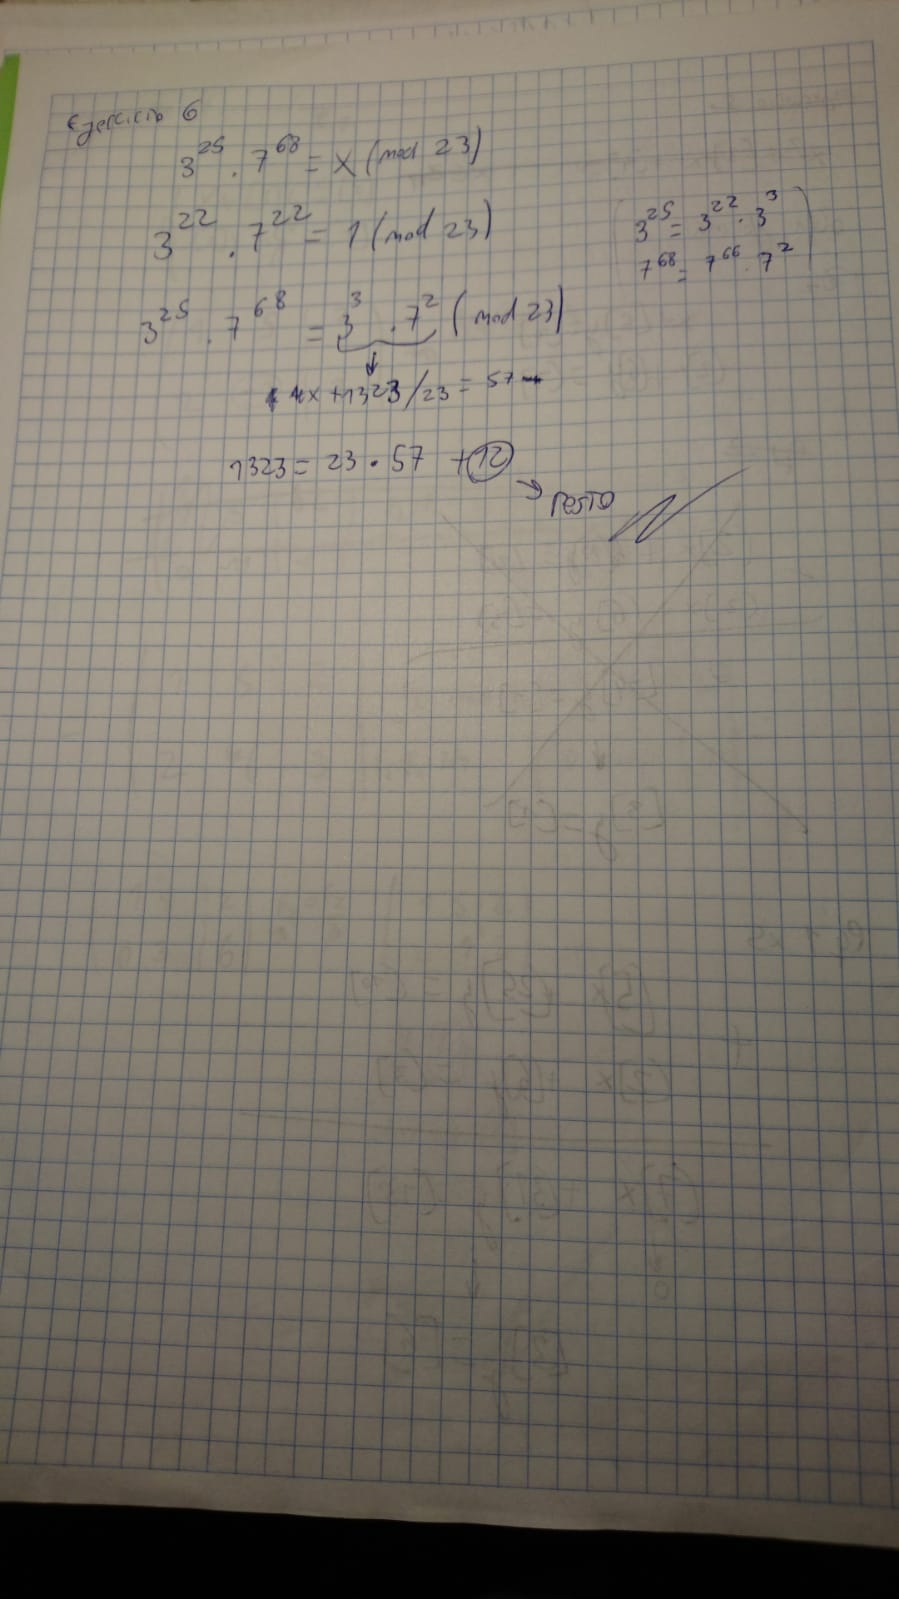 Ejercicio 6
3^25 . 7^68 = x (mod 23)
3^22 . 7^22 = 1 (mod 23)
3^25 = 3^22 . 3^3
7^68 = 7^66 . 7^2
3^25 . 7^68 = 3^3 . 7^2 (mod 23)
1323/23 = 57
1323 = 23 . 57 + 12
→ resto